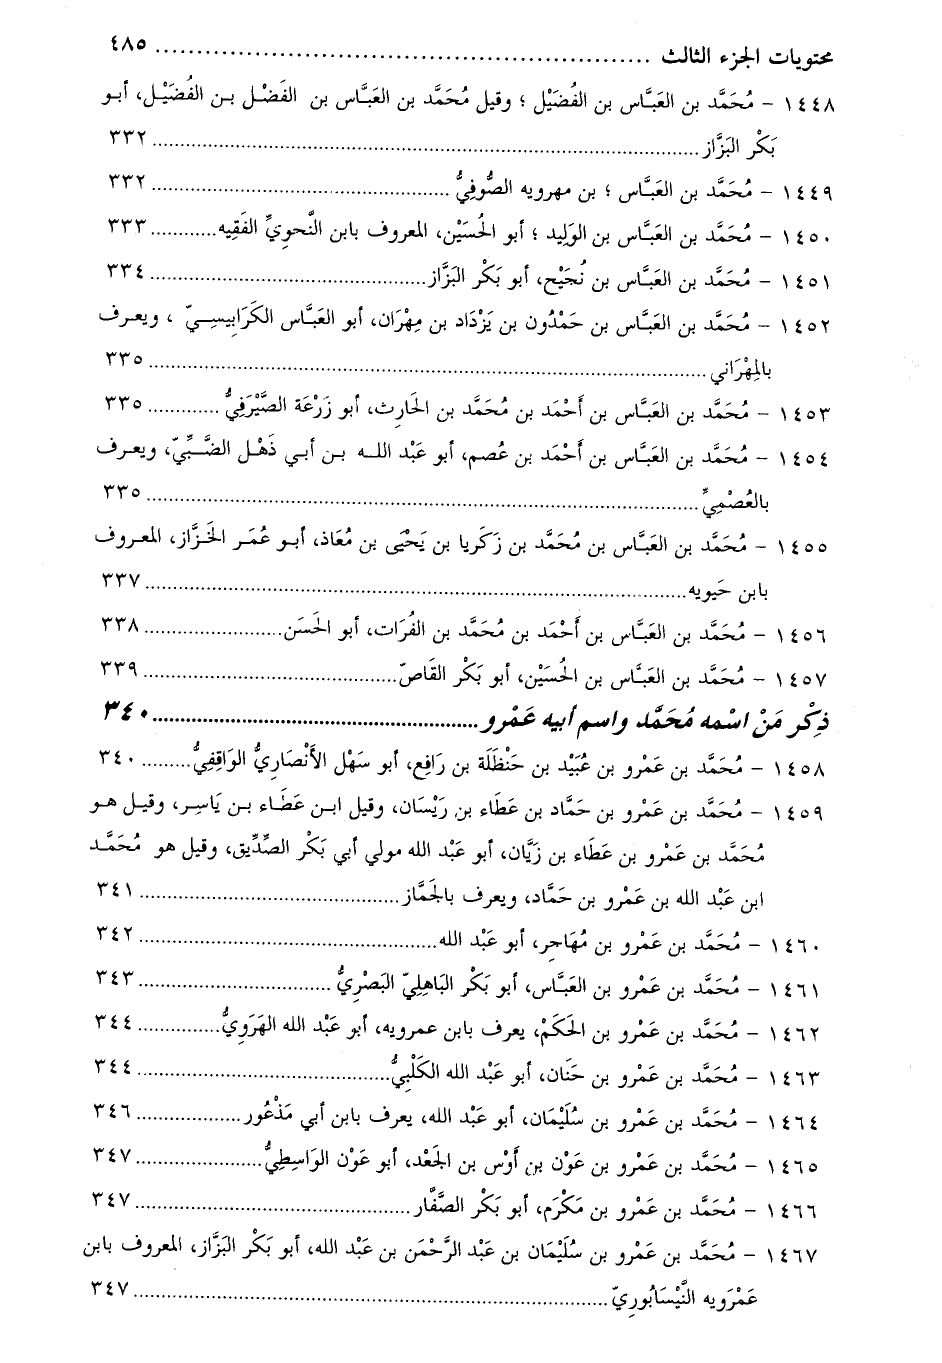 محتويات الجزء الثالث ........ ٤٨٥
١٤٤٨ – مُحَمَّد بن العَبَّاس بن الفُضَيْل ؛ وقيل مُحَمَّد بن العَبَّاس بن الفَضْل بن الفُضَيْل، أبو
بَكْر البَزَّاز ........ ٣٣٢
١٤٤٩ – مُحَمَّد بن العَبَّاس ؛ بن مهرويه الصُّوفِيُّ ........ ٣٣٢
١٤٥٠ – مُحَمَّد بن العَبَّاس بن الوَلِيد ؛ أبو الحُسَيْن، المعروف بابن النَّحويِّ الفَقِيه ........ ٣٣٣
١٤٥١ – مُحَمَّد بن العَبَّاس بن نُجَيْح، أبو بَكْر البَزَّاز ........ ٣٣٤
١٤٥٢ – مُحَمَّد بن العَبَّاس بن حَمْدُون بن يَزْدَاد بن مِهْرَان، أبو العَبَّاس الكَرَابِيسِيّ ، ويعرف
بالمِهْرَاني ........ ٣٣٥
١٤٥٣ – مُحَمَّد بن العَبَّاس بن أَحْمَد بن مُحَمَّد بن الحَارِث، أبو زَرْعَة الصَّيْرَفِيُّ ........ ٣٣٥
١٤٥٤ – مُحَمَّد بن العَبَّاس بن أَحْمَد بن عُصم، أبو عَبْد الله بن أبي ذَهْل الضَّبِّيّ، ويعرف
بالعُصْمِيِّ ........ ٣٣٥
١٤٥٥ – مُحَمَّد بن العَبَّاس بن مُحَمَّد بن زَكَريا بن يَحْيَى بن مُعَاذ، أبو عُمَر الخَزَّاز، المعروف
بابن حَيويه ........ ٣٣٧
١٤٥٦ – مُحَمَّد بن العَبَّاس بن أَحْمَد بن مُحَمَّد بن الفُرَات، أبو الحَسَن ........ ٣٣٨
١٤٥٧ – مُحَمَّد بن العَبَّاس بن الحُسَيْن، أبو بَكْر القَاصّ ........ ٣٣٩
ذِكْر مَنْ اسْمه مُحَمَّد واسم أبيه عَمْرو ........ ٣٤٠
١٤٥٨ – مُحَمَّد بن عَمْرو بن عُبَيْد بن حَنْظَلَة بن رَافِع، أبو سَهْل الأَنْصَارِيُّ الوَاقِفِيُّ ........ ٣٤٠
١٤٥٩ – مُحَمَّد بن عَمْرو بن حَمَّاد بن عَطَاء بن رَيْسَان، وقيل ابن عَطَاء بن يَاسِر، وقيل هو
مُحَمَّد بن عَمْرو بن عَطَاء بن زَيَّان، أبو عَبْد الله مولي أبي بَكْر الصِّدِّيق، وقيل هو مُحَمَّد
ابن عَبْد الله بن عَمْرو بن حَمَّاد، ويعرف بالجَمَّاز ........ ٣٤١
١٤٦٠ – مُحَمَّد بن عَمْرو بن مُهَاجِر، أبو عَبْد الله ........ ٣٤٢
١٤٦١ – مُحَمَّد بن عَمْرو بن العَبَّاس، أبو بَكْر البَاهِلِيّ البَصْرِيُّ ........ ٣٤٣
١٤٦٢ – مُحَمَّد بن عَمْرو بن الحَكَمْ، يعرف بابن عمرويه، أبو عَبْد الله الهَرَوِيُّ ........ ٣٤٤
١٤٦٣ – مُحَمَّد بن عَمْرو بن حَنَان، أبو عَبْد الله الكَلْبِيُّ ........ ٣٤٤
١٤٦٤ – مُحَمَّد بن عَمْرو بن سُلَيْمَان، أبو عَبْد الله، يعرف بابن أبي مَذْعُور ........ ٣٤٦
١٤٦٥ – مُحَمَّد بن عَمْرو بن عَوْن بن أَوْس بن الجَعْد، أبو عَوْن الوَاسِطِيُّ ........ ٣٤٧
١٤٦٦ – مُحَمَّد بن عَمْرو بن مَكْرَم، أبو بَكْر الصَّفَّار ........ ٣٤٧
١٤٦٧ – مُحَمَّد بن عَمْرو بن سُلَيْمَان بن عَبْد الرَّحْمَن بن عَبْد الله، أبو بَكْر البَزَّاز، المعروف بابن
عَمْرَويه النَّيْسَابُوريّ ........ ٣٤٧